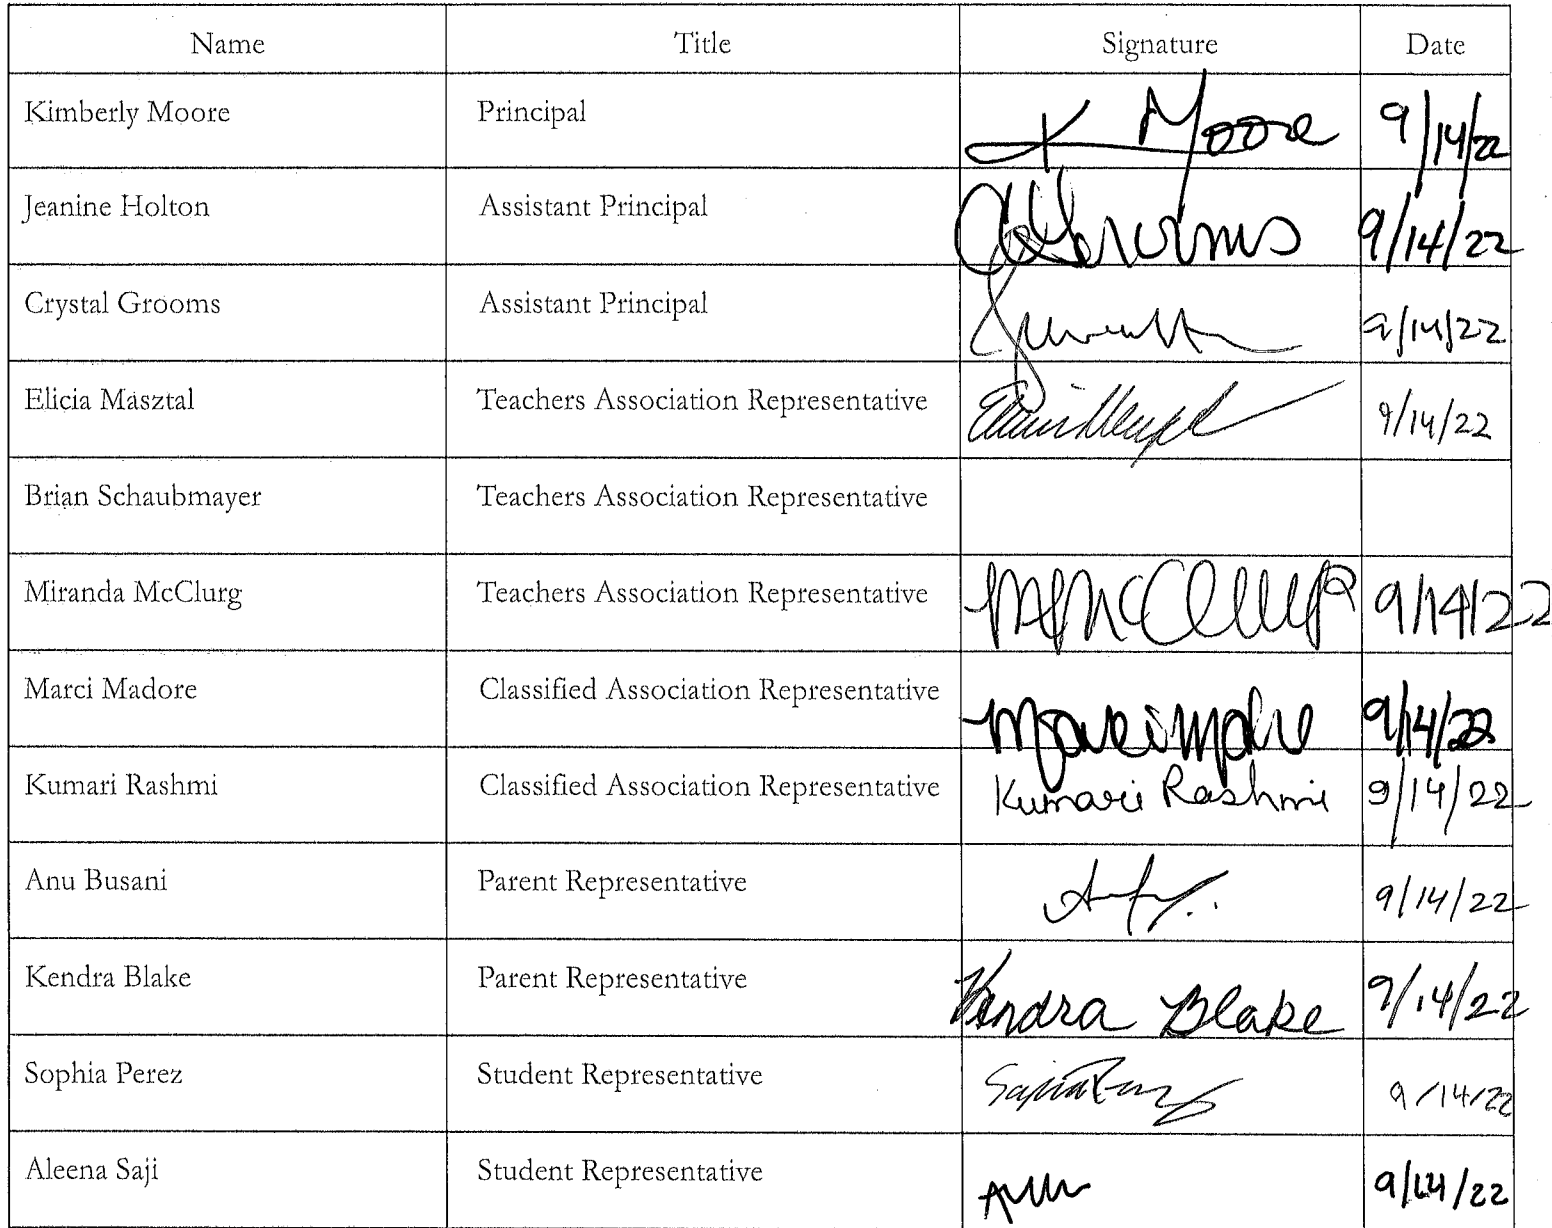 Name Title Signature Date
Kimberly Moore Principal K Moore 9/14/22
Jeanine Holton Assistant Principal CGrooms 9/14/22
Crystal Grooms Assistant Principal 9/14/22
Elicia Masztal Teachers Association Representative 9/14/22
Brian Schaubmayer Teachers Association Representative
Miranda McClurg Teachers Association Representative M McClurg 9/14/22
Marci Madore Classified Association Representative 9/14/22
Kumari Rashmi Classified Association Representative Kumari Rashmi 9/14/22
Anu Busani Parent Representative 9/14/22
Kendra Blake Parent Representative Kendra Blake 9/14/22
Sophia Perez Student Representative 9/14/22
Aleena Saji Student Representative 9/14/22